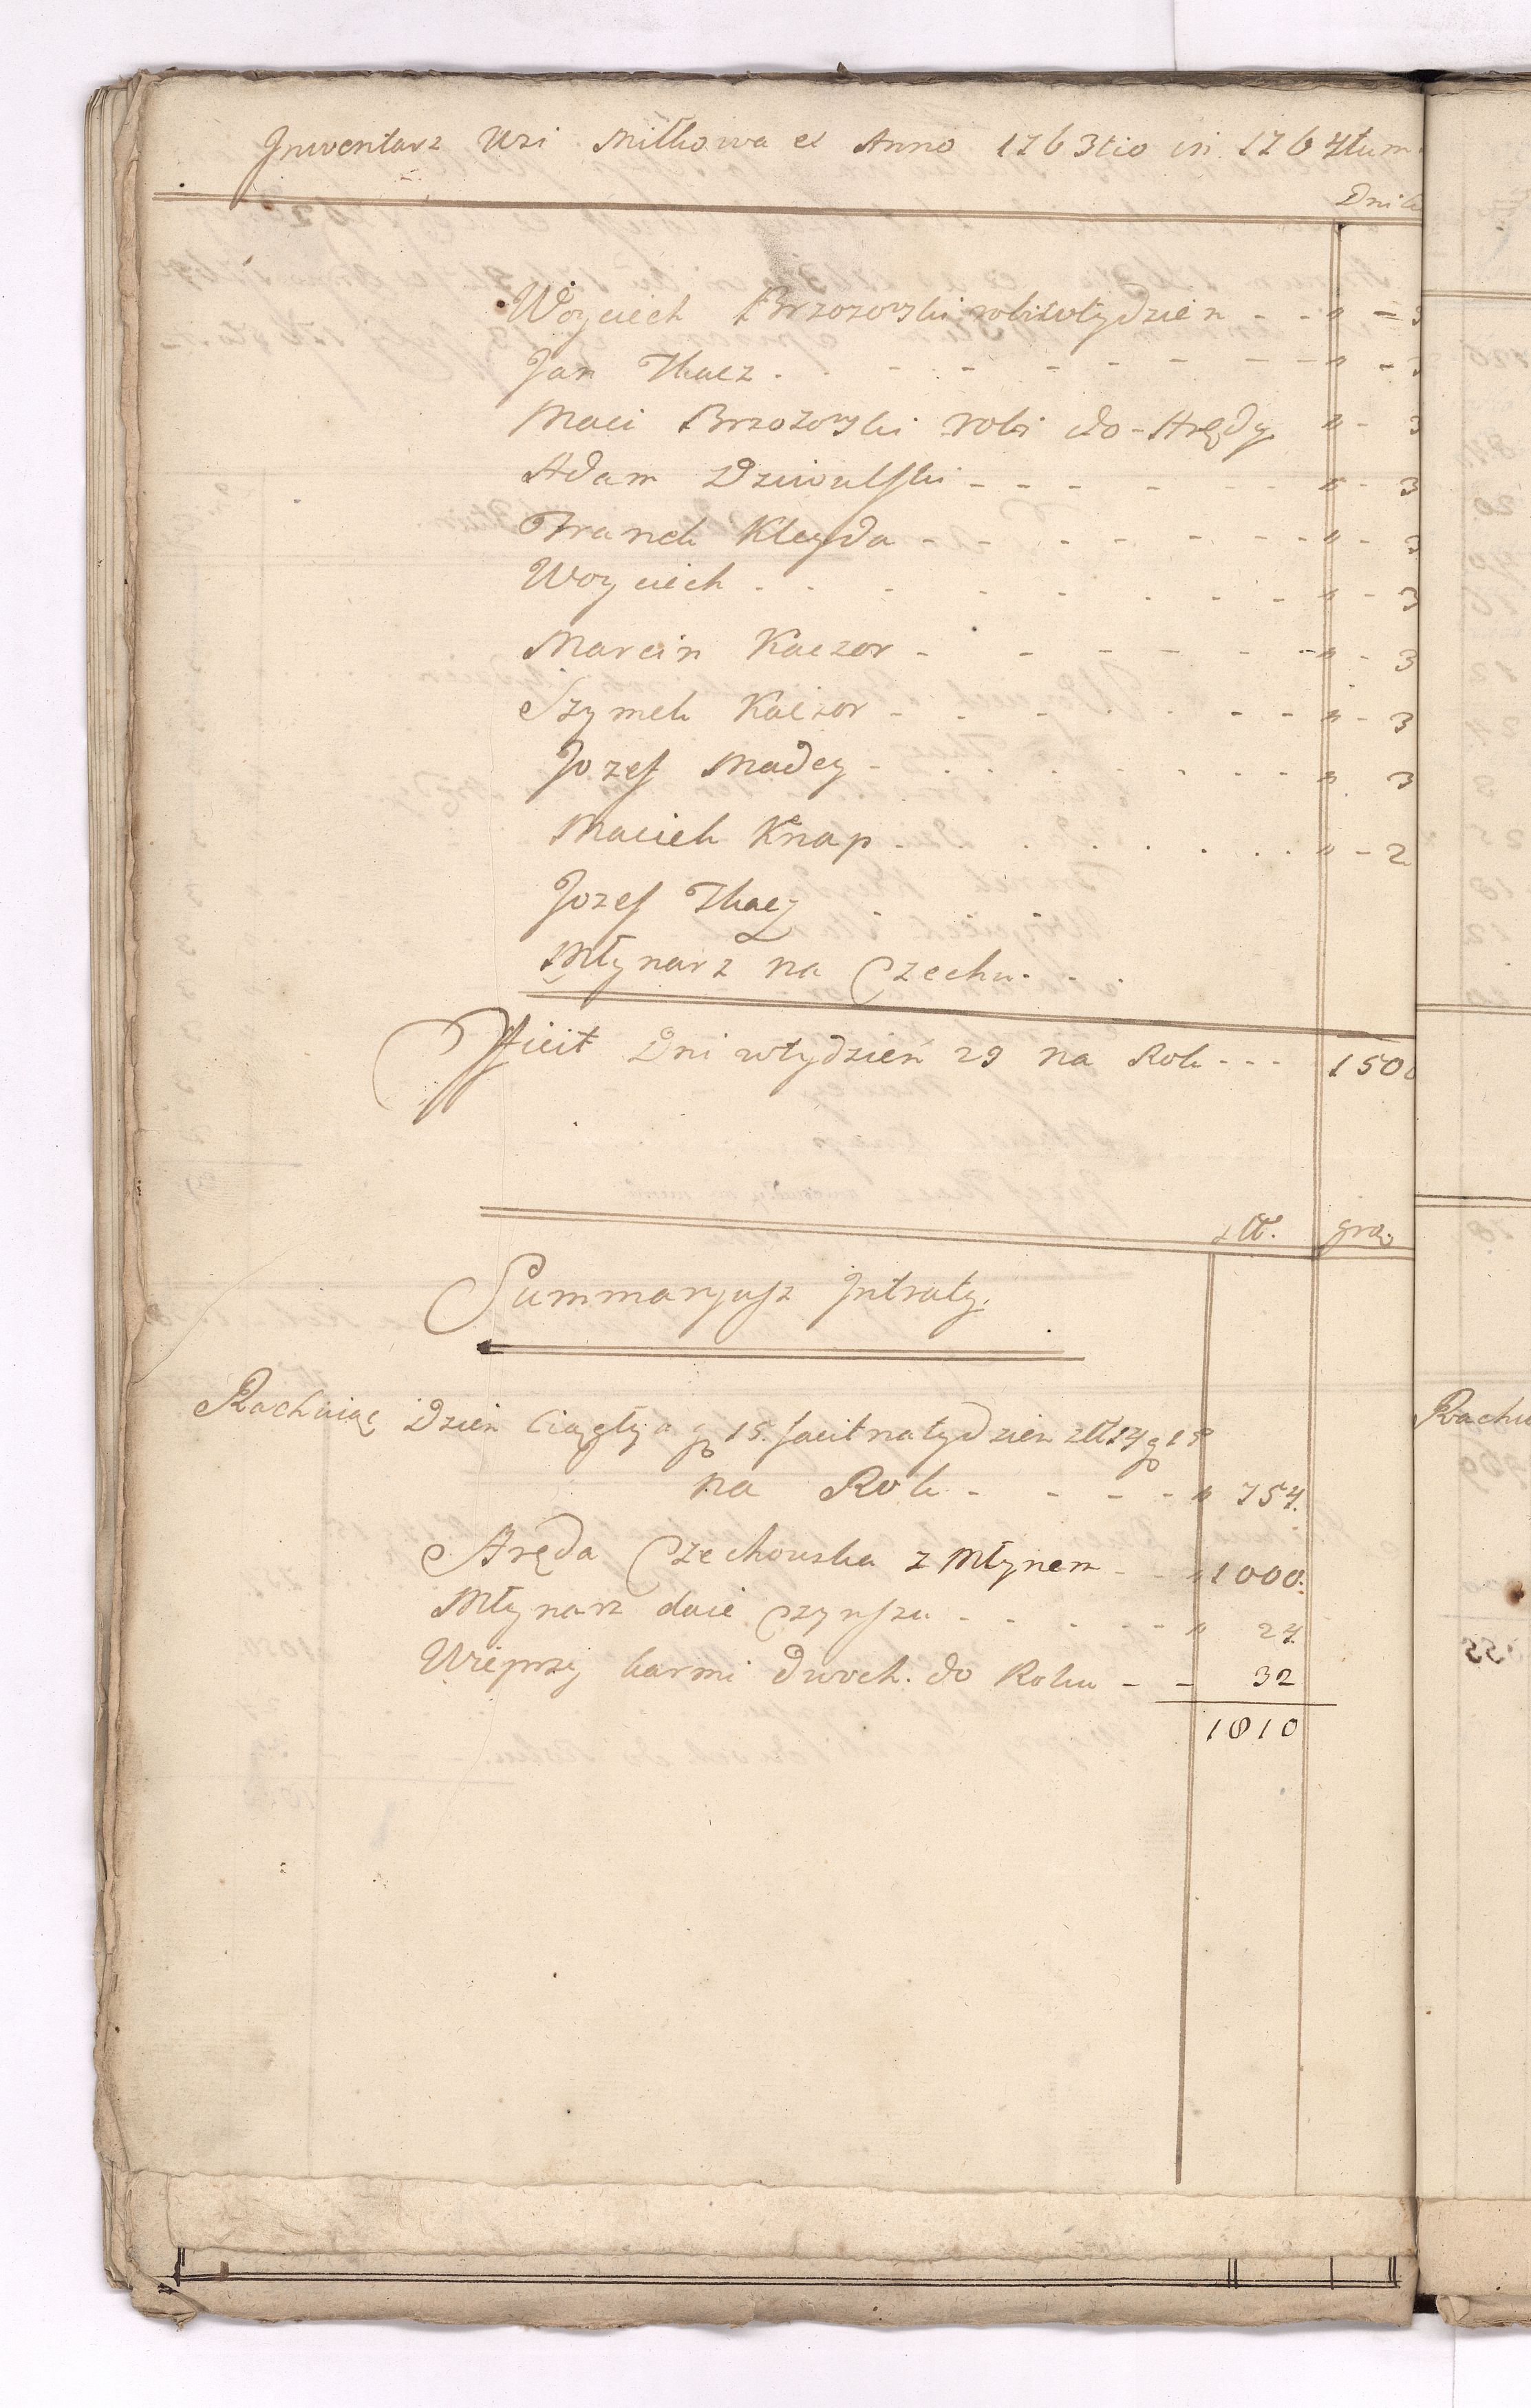 Inwentarz Wsi Miłkowa ex Anno 1763tio in 1764tum
Dni
Woyciech Brzozowski robi wtydzien - - " - 3
Jan Tkacz . - - - - - - " - 3
Maci Brzozowski robi do Arędy " - 3
Adam Dziwulski - - - - - - " - 3
Franek Kleyda - - - - - - " - 3
Woyciech . . - - - - - - " - 3
Marcin Kaczor - - - - - - " - 3
Szymek Kaczor - - - - - - " - 3
Jozef Madey - . . . - - - " 3
Maciek Knap - . . . . . " - 2
Jozef Tkacz . - -
Młynarz na Czechu - - .
Facit Dni wtydzień 29 na Rok - - - 1508
złł. gro.
Summaryusz Intraty.
Rachuiąc Dzien Ciągły a g 15. facit natydzien złł 14 g 15
na Rok - - - - " 754.
Aręda Czechowska z Młynem - - " 1000.
Młynarz daie Czynszu - - - - - " 24.
Wieprzy karmi dwoch. do Roku - - 32
1810
Rachu